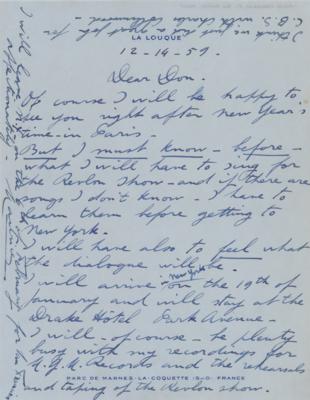 LA LOUQUE
12-14-59
Dear Don.
Of course I will be happy to
see you right after New Year's
time - in Paris -
But I must know - before -
what I will have to sing for
the Revlon Show - and if there are
songs I don't know - I have to
learn them before getting to
New York.
I will have also to feel what
the dialogue will be.
I will arrive in New York on the 19th of
January and will stay at the
Drake Hotel Park Avenue -
I will - of course - be plenty
busy with my recordings for
M.G.M. Records and the rehearsals
and taping of the Revlon show.
PARC DE MARNES-LA-COQUETTE (S.-O.) FRANCE
I will leave New York on the
for
affectionately -
I think we just did a great job for
C.B.S. with Charles Collingwood -